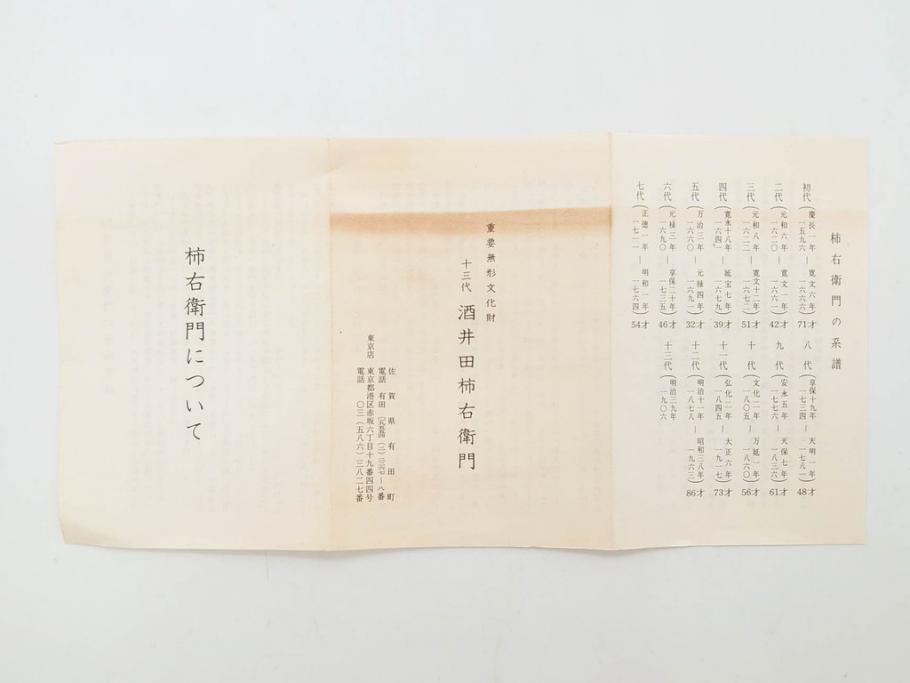 柿右衛門の系譜
初代（慶長一年（一五九六）―寛文六年（一六六六）71才
二代（元和六年（一六二〇）―寛文一年（一六六一）42才
三代（元和八年（一六二二）―寛文十二年（一六七二）51才
四代（寛永十八年（一六四一）―延宝七年（一六七九）39才
五代（万治三年（一六六〇）―元禄四年（一六九一）32才
六代（元禄三年（一六九〇）―享保二十年（一七三五）46才
七代（正徳一年（一七一一）―明和一年（一七六四）54才
八代（享保十九年（一七三四）―天明一年（一七八一）48才
九代（安永五年（一七七六）―天保七年（一八三六）61才
十代（文化二年（一八〇五）―万延一年（一八六〇）56才
十一代（弘化二年（一八四五）―大正六年（一九一七）73才
十二代（明治十一年（一八七八）―昭和三八年（一九六三）86才
十三代（明治三九年（一九〇六）
重要無形文化財
十三代 酒井田柿右衛門
佐賀県有田町
電話 有田
東京店 東京都港区赤坂六丁目十九番四四号
電話 〇三（五八六）三八二七番
柿右衛門について